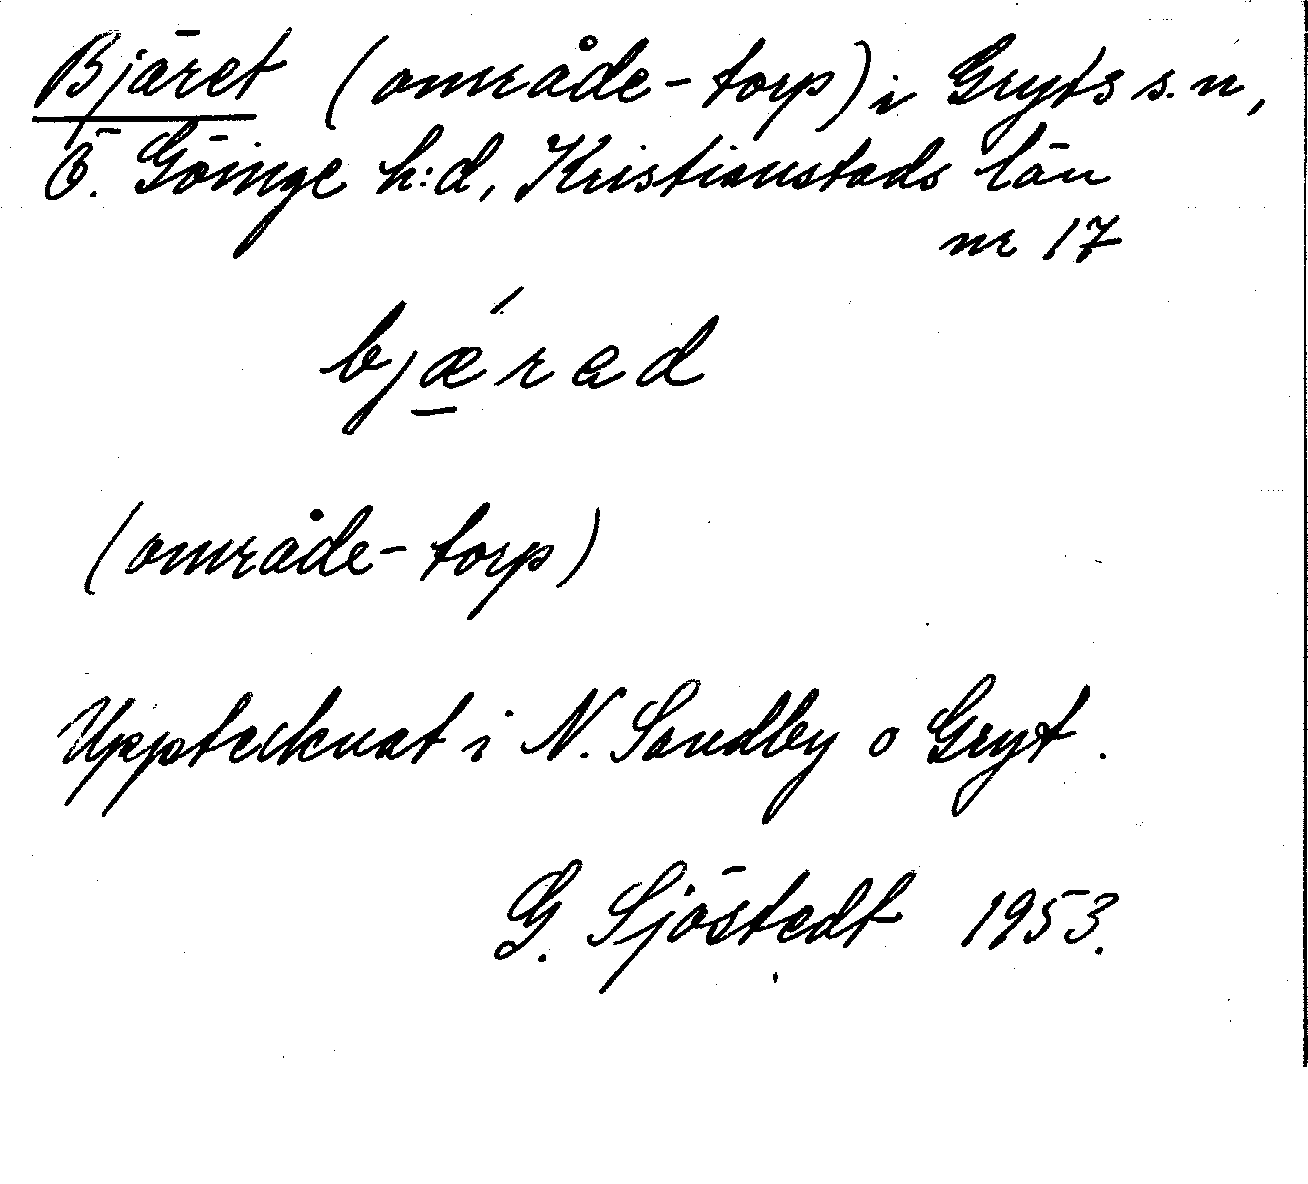 Bjäret (område-torp) i Gryts s.n,
Ö. Göinge h:d, Kristianstads län
nr 17
bjǽ̲rad
(område-torp)
Upptecknat i N. Sandby o Gryt.
G. Sjöstedt 1953.